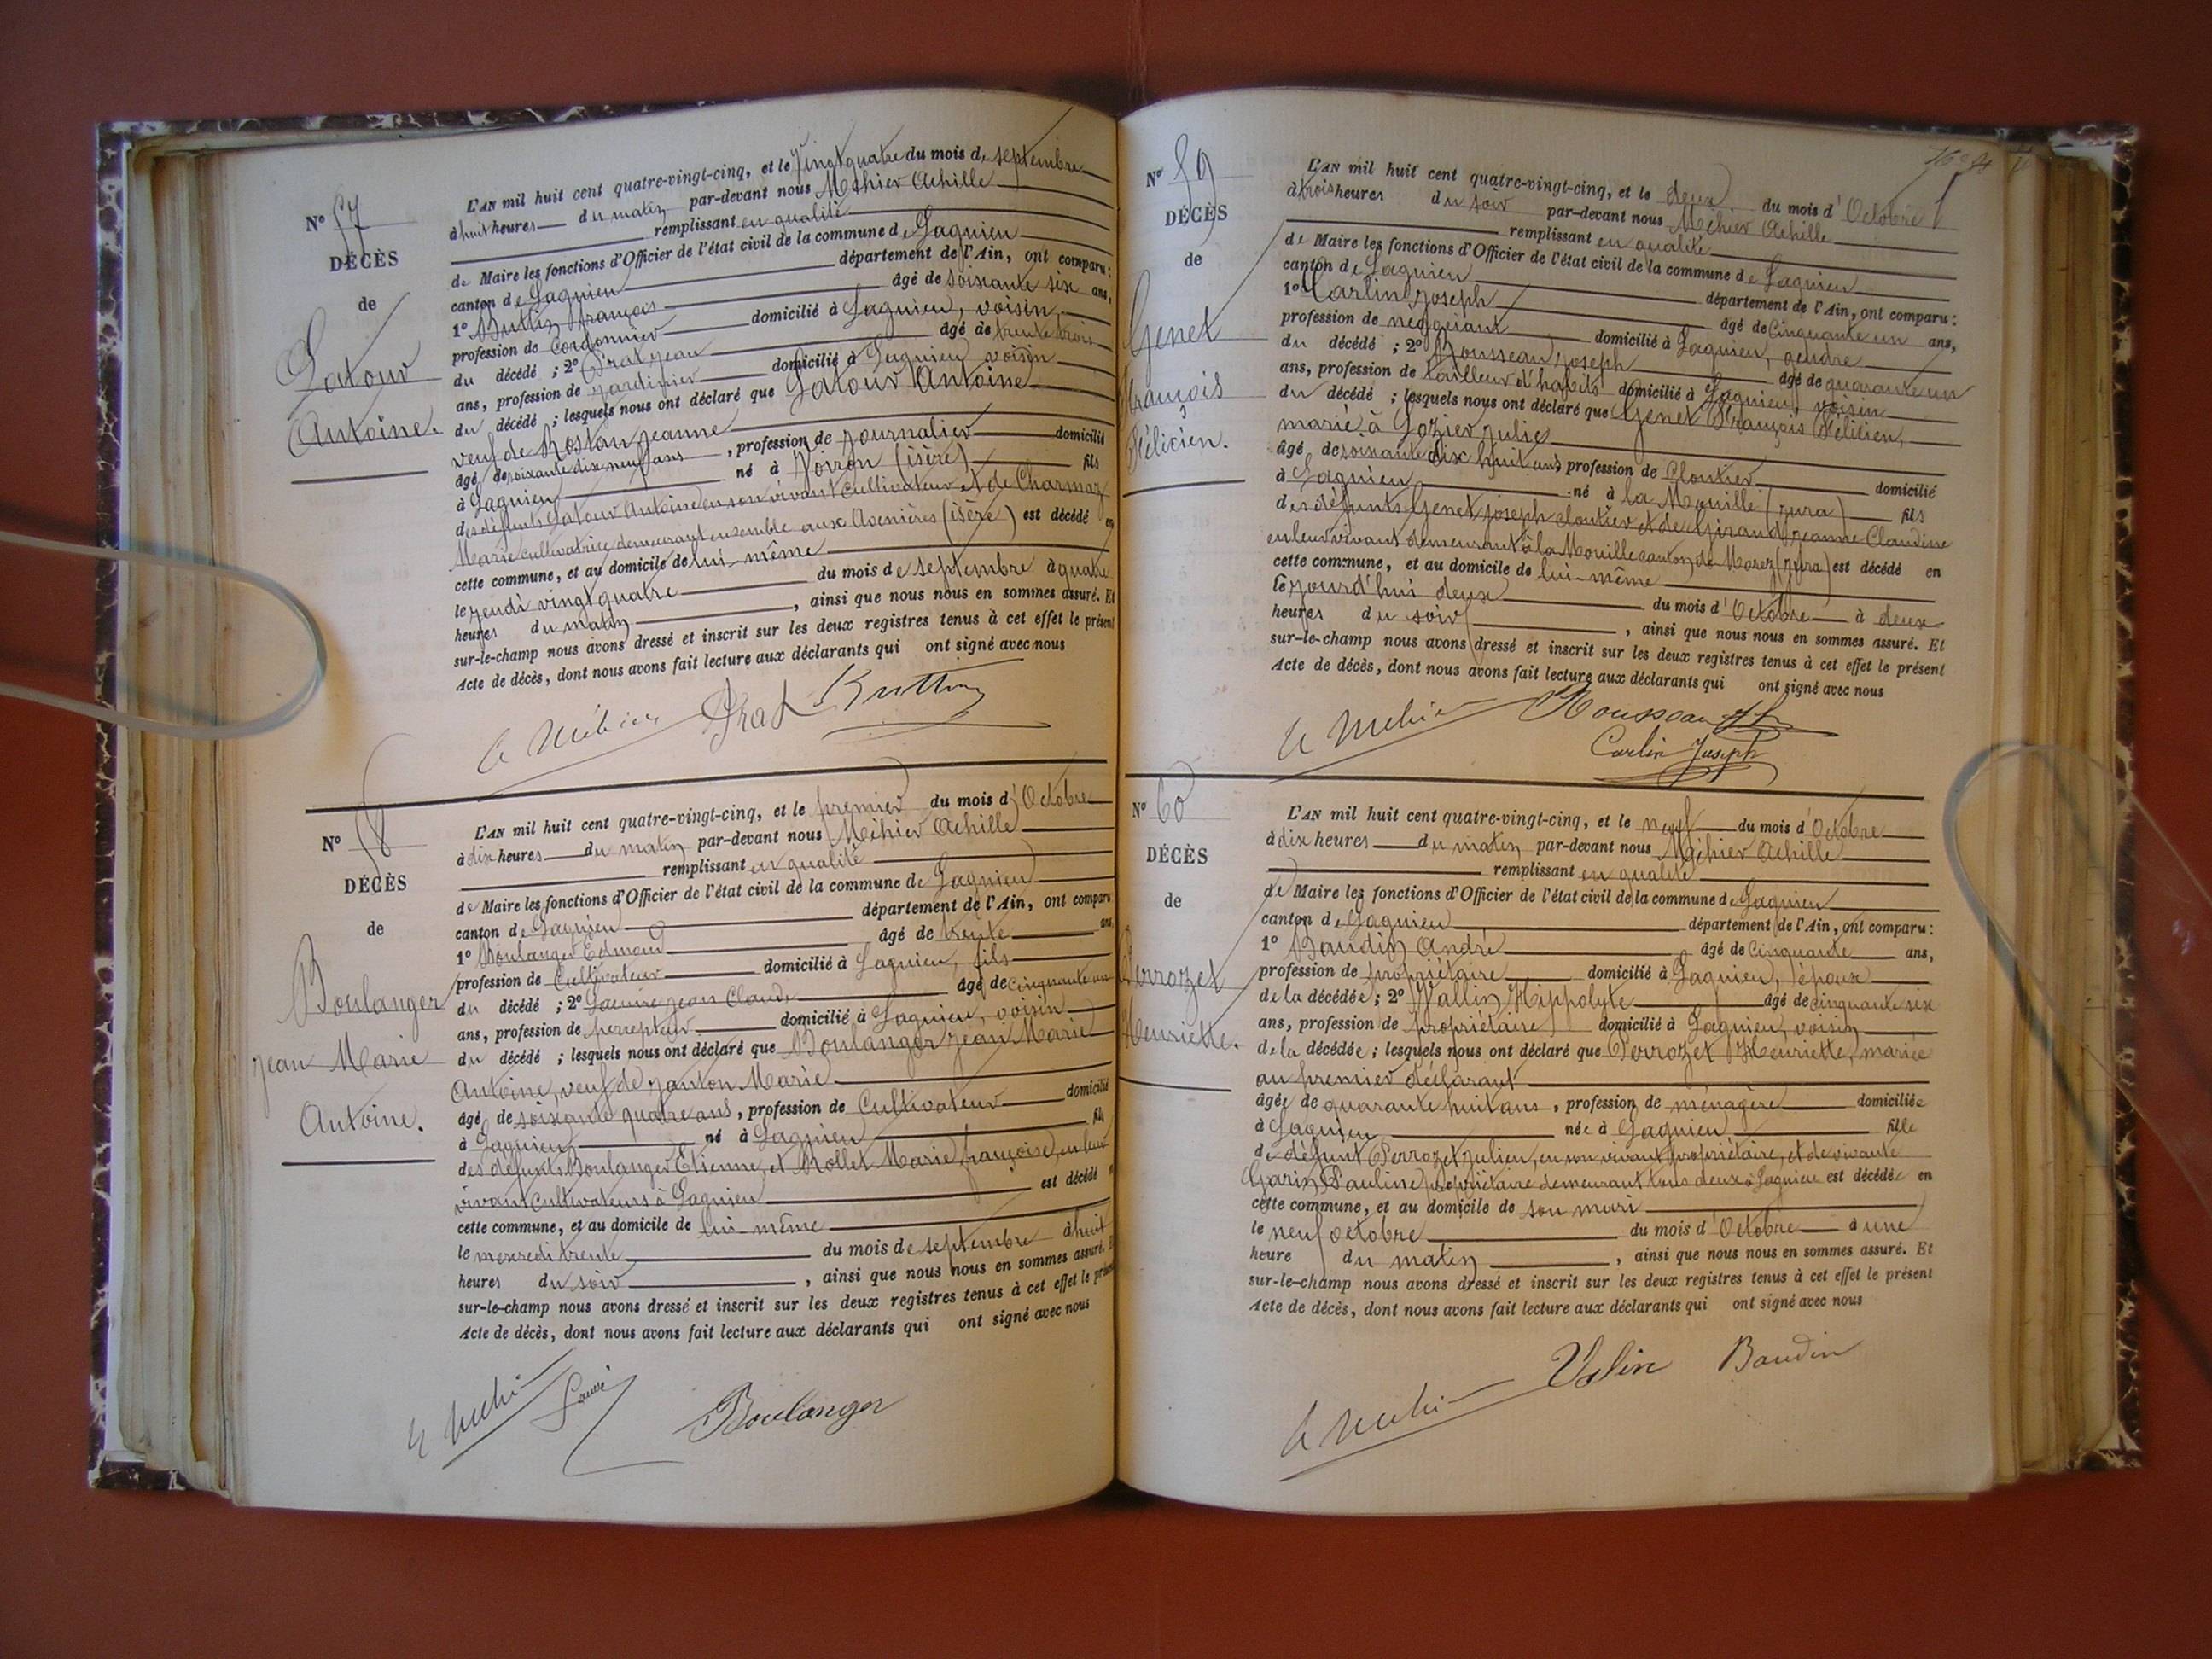 N° 57
DÉCÈS
de
Latour
Antoine.
L'AN mil huit cent quatre-vingt-cinq, et le vingt quatre du mois de septembre
à huit heures du matin par-devant nous Méhier Achille
remplissant en qualité
de Maire les fonctions d'Officier de l'état civil de la commune de Lagnieu
canton de Lagnieu département de l'Ain, ont comparu:
1° François âgé de soixante six ans,
profession de Cordonnier domicilié à Lagnieu, voisin
du décédé ; 2° Prat jean âgé de trente trois
ans, profession de jardinier domicilié à Lagnieu voisin
du décédé ; lesquels nous ont déclaré que Latour Antoine
veuf de Rostan jeanne
âgé de soixante dix neuf ans, profession de journalier domicilié
à Lagnieu né à Voiron (isère) fils
des défunts Latour Antoine en son vivant Cultivateur et de Charmaz
Marie cultivatrice demeurant ensemble aux Avenières (isère) est décédé en
cette commune, et au domicile de lui-même
le jeudi vingt quatre du mois de septembre à quatre
heures du matin, ainsi que nous nous en sommes assuré. Et
sur-le-champ nous avons dressé et inscrit sur les deux registres tenus à cet effet le présent
Acte de décès, dont nous avons fait lecture aux déclarants qui ont signé avec nous
A Méhier Prat
N° 58
DÉCÈS
de
Boulanger
jean Marie
Antoine.
L'AN mil huit cent quatre-vingt-cinq, et le premier du mois d'Octobre
à dix heures du matin par-devant nous Méhier Achille
remplissant en qualité
de Maire les fonctions d'Officier de l'état civil de la commune de Lagnieu
canton de Lagnieu département de l'Ain, ont comparu
1° Boulanger Edmond âgé de trente ans
profession de Cultivateur domicilié à Lagnieu, fils
du décédé ; 2° jean Claude âgé de Cinquante un
ans, profession de percepteur domicilié à Lagnieu, voisin
du décédé ; lesquels nous ont déclaré que Boulanger jean Marie
Antoine, veuf de janton Marie
âgé de soixante quatre ans, profession de Cultivateur domicilié
à Lagnieu né à Lagnieu fils
des défunts Boulanger Etienne, et Rollet Marie françoise, en leur
vivant Cultivateurs à Lagnieu est décédé
cette commune, et au domicile de lui-même
le mercredi trente du mois de septembre à huit
heures du soir, ainsi que nous nous en sommes assuré. E
sur-le-champ nous avons dressé et inscrit sur les deux registres tenus à cet effet le présent
Acte de décès, dont nous avons fait lecture aux déclarants qui ont signé avec nous
A Méhier Boulanger
N° 59
DÉCÈS
de
Genet
François
Félicien.
L'AN mil huit cent quatre-vingt-cinq, et le deux du mois d'Octobre
à trois heures du soir par-devant nous Méhier Achille
remplissant en qualité
de Maire les fonctions d'Officier de l'état civil de la commune de Lagnieu
canton de Lagnieu département de l'Ain, ont comparu:
1° Carlin joseph âgé de Cinquante un ans,
profession de négociant domicilié à Lagnieu, gendre
du décédé ; 2° Rousseau joseph âgé de quarante un
ans, profession de tailleur d'habits domicilié à Lagnieu, voisin
du décédé ; lesquels nous ont déclaré que Genet François Félicien,
marié à Gozier julie
âgé de soixante dix huit ans profession de Cloutier domicilié
à Lagnieu né à la Mouille (jura) fils
des défunts Genet joseph cloutier et de Giraud jeanne Claudine
en leur vivant demeurant à la Mouille canton de Morez (jura) est décédé en
cette commune, et au domicile de lui-même
le jourd'hui deux du mois d'Octobre à deux
heures du soir, ainsi que nous nous en sommes assuré. Et
sur-le-champ nous avons dressé et inscrit sur les deux registres tenus à cet effet le présent
Acte de décès, dont nous avons fait lecture aux déclarants qui ont signé avec nous
A Méhier Rousseau
Carlin Joseph
N° 60
DÉCÈS
de
Perrozet
Henriette.
L'AN mil huit cent quatre-vingt-cinq, et le neuf du mois d'Octobre
à dix heures du matin par-devant nous Méhier Achille
remplissant en qualité
de Maire les fonctions d'Officier de l'état civil de la commune de Lagnieu
canton de Lagnieu département de l'Ain, ont comparu:
1° Baudin André âgé de Cinquante ans,
profession de propriétaire domicilié à Lagnieu, époux
de la décédée ; 2° Vallin Hippolyte âgé de cinquante six
ans, profession de propriétaire domicilié à Lagnieu, voisin
de la décédée ; lesquels nous ont déclaré que Perrozet Henriette, mariée
au premier déclarant
âgée de quarante huit ans, profession de ménagère domiciliée
à Lagnieu née à Lagnieu fille
de défunt Perrozet julien, en son vivant propriétaire, et de vivante
Garin Pauline propriétaire demeurant tous deux à Lagnieu est décédée en
cette commune, et au domicile de son mari
le neuf octobre du mois d'Octobre à une
heure du matin, ainsi que nous nous en sommes assuré. Et
sur-le-champ nous avons dressé et inscrit sur les deux registres tenus à cet effet le présent
Acte de décès, dont nous avons fait lecture aux déclarants qui ont signé avec nous
A Méhier Valin Baudin